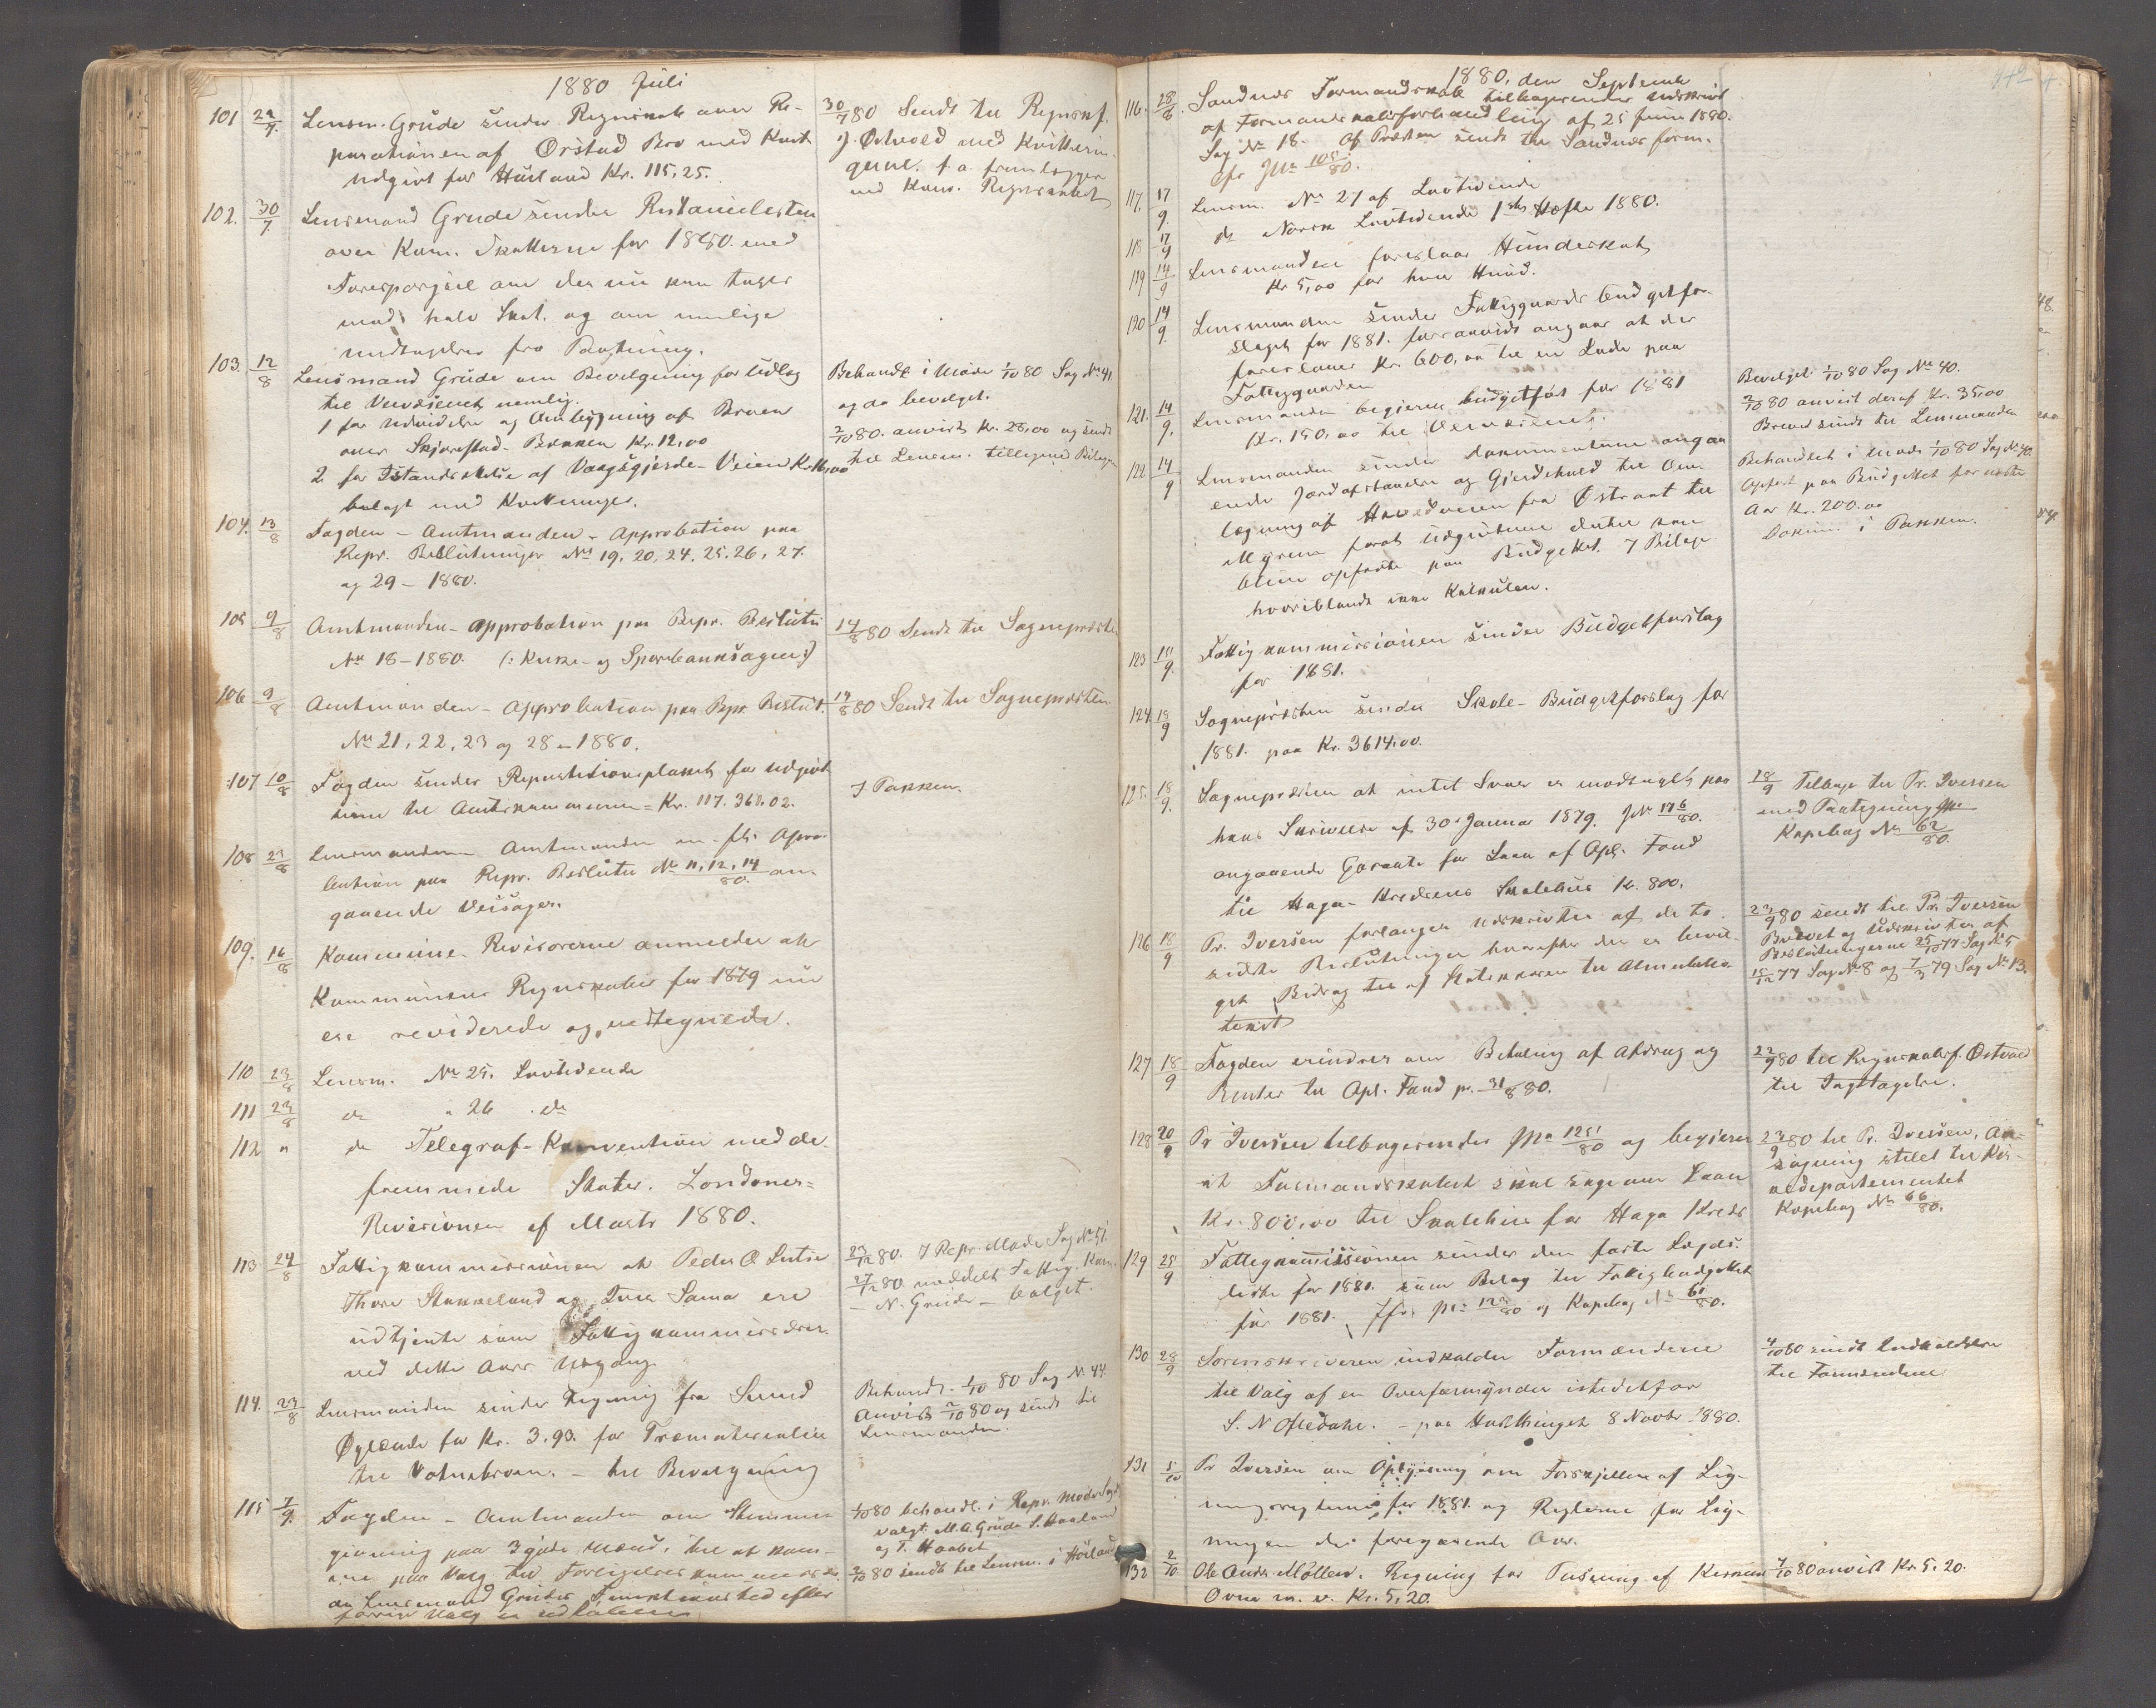 1880 Juli
101 29/7. Lensm. Grude sender Regnskab over Re-
parationen af Orstad Bro med Kvit
udgivt for Høiland Kr. 115,25.
30/7 80 Sendt til Regnskf.
J. Østvold med Kvitterin
ved Kom. Regnskabet
102. 30/7 Lensmand Grude sender Restancelisten
over Kom. Skatterne for 1880 med
Forespørgsel om der nu kan tages
mod halv Skat. og om mulige
undtagelser fra Pantning.
103. 12/8 Lensmand Grude om Bevilgning for Udlæg
til Veivæsenet nemlig.
1 for Udvidelse og Ombygning af Broen
over Skjæveland-Bækken Kr. 12,00
2 for Istandsættelse af Vaagsgjerde-Veien Kr. 16,00
belagt med Kvitteringer.
Behandl i Møde 1/10 80 Sag No 41
og da bevilget.
2/10 80. anvist Kr. 28,00 og sendt
til Lensm. tilligemed Bilagen
104. 13/8 Fogden - Amtmanden - Approbation paa
Repr. Beslutninger No 19, 20, 24, 25, 26, 27
og 29 - 1880.
105 9/8 Amtmanden - Approbation paa Repr. Beslutn
No 18 - 1880. (: Kirke- og Sparebanksagen :)
14/8 80 Sendt til Sognepræsten
106 9/8 Amtmanden - Approbation paa Repr. Beslut.
No 21, 22, 23 og 28 - 1880.
14/8 80 Sendt til Sognepræsten
107 10/8 Fogden sender Repartitionsplanet for udgivt
terne til Amtskommunen = Kr. 117.361,02.
I Pakken.
108 23/8 Lensmanden Amtmanden m. fl. Appro
bation paa Repr. Beslutn No 11, 12, 14/80. an
gaaende Veisager.
109. 16/8 Kommune-Revisorerne anmelder at
Kommunens Regnskaber for 1879 nu
ere reviderede og vedtegnede.
110 23/8 Lensm. No 25. Lovtidende
111 23/8 do " 26 . do
112 " do Telegraf-Konvention med de
fremmede Stater. Londoner-
Revisionen af Marts 1880.
113 24/8 Fattigkommissionen at Peder O Lutsi
Thore Stokkeland og Iver Soma ere
udtjente som Fattigkommissærer
ved dette Aars Udgang
23/12 80. I Repr. Møde Sag No 51.
27/12 80 meddelt Fattig. Kom.
- N. Grude - valget.
114. 23/8 Lensmanden sender Regning fra Svend
Øglænde for Kr. 3.93. for Træmaterialier
til Vatnebroen. - til Bevilgning
Behandl. 1/10 80 Sag No 44.
Anvist 2/10 80 og sendt til
Lensmanden.
115 7/9. Fogden - Amtmanden om Stemme
givning paa 3 gode Mænd, til at kom-
me paa Valg til Forligelseskommissær
da Lensmand Grudes Funktionstid efter
forrige Valg er udløben
1/10 80 behandl. i Repr. Møde Sag
valgt M. A. Grude S. Haaland
og T. Haabet
2/10 80 sendt til Lensm. i Høiland
1880, den September
116. 28/8 Sandnes Formandskab tilbagesender Udskrivt
af Formandskabsforhandling af 25 Juni 1880.
Sag No 18. Af Præsten sendt til Sandnes form.
cfr JNo 105/80.
117. 17/9. Lensm. No 27 af Lovtidende
118 17/9 do Norsk Lovtidende 1ste Hefte 1880.
119 14/9 Lensmanden foreslaar Hundeskat
Kr 5,00 for hver Hund.
120 14/9. Lensmanden sender Fattiggaards budgetfor-
slaget for 1881. forsaavidt angaar at der
foreslaaes Kr. 600,00 til en Lade paa
Fattiggaarden
121. 14/9. Lensmanden begjærer budgetført for 1881
Kr. 150,00 til Veivæsenet.
Bevilget 1/10 80 Sag No 40.
2/10 80 anvist deraf Kr. 35,00
Brevet sendt til Lensmanden
122. 14/9 Lensmanden sender Dokumenterne angaa
ende Jordafstaaelse og Gjerdehold til Om
lægning af Hovedveien fra Østraat til
Myrene forat Udgivterne dertil kan
blive opførte paa Budgettet. 7 Bilage
hvoriblandt ikke Kalkulen.
Behandlet i Møde 1/10 80 Sag No 40.
Opført paa Budgettet for næste
Aar Kr. 200.00
Dokum. i Pakken.
123 15/9. Fattigkommissionen sender Budgetforslag
for 1881.
124 18/9 Sognepræsten sender Skole-Budgetforslag for
1881. paa Kr. 3614,00.
125. 18/9. Sognepræsten at intet Svar er modtaget paa
hans Skrivelse af 30 Januar 1879. JNo 176/80.
angaaende Garanti for Laan af Opl. Fond
til Haga-Kredsens Skolehus Kr. 800.
18/9 Tilbage til Pr. Iversen
med Paategning
Kopibog No 62/80.
126 18/9 Pr. Iversen forlanger Udskrivter af de to
sidste Beslutninger hvorefter der er bevil-
get Bidrag til af Statskassen til Almueskole
23/9 80 sendt til Pr. Iversen
Brevet og Udskrivter af
Beslutningerne 25/10 77 Sag No 5
15/12 77 Sag No 8 og 7/3 79 Sag No 13.
127 18/9 Fogden erindrer om Betaling af Afdrag og
Renter til Opl. Fond pr. 31/8 80.
22/9 80 til Regnskabsf. Østvold
til Iagttagelse.
128 20/9 Pr Iversen tilbagesender JNo 125/80 og begjærer
at Formandskabet skal søge om Laan
Kr. 800,00 til Skolehus for Haga Kreds
23/9 80 til Pr. Iversen, An-
søgning stilet til Kir-
kedepartementet
Kopibog No 66/80.
129 25/9 Fattigkommissionen sender den faste Lægds-
liste for 1880. som Bilag til Fattigbudgettet
for 1881. Jfr JNo 123/80 og Kopibog No 61/80.
130 28/9 Sorenskriveren indkalder Formændene
til Valg af en Overformynder istedetfor
S. N Oftedahl. - paa Høsthinget 8 Novbr 1880.
4/10 80 sendt Indkaldelsen
til Formændene
131 5/10 Pr Iversen om Oplysning om Forskjellen af Lig-
ningsreglerne for 1881. og Reglerne for Lig-
ningen det foregaaende Aar.
132 2/10 Ole Andr. Møllers. Regning for Pudsning af Kirkens
Ovne m. v. Kr. 5,20.
7/10 80 anvist Kr. 5,20.